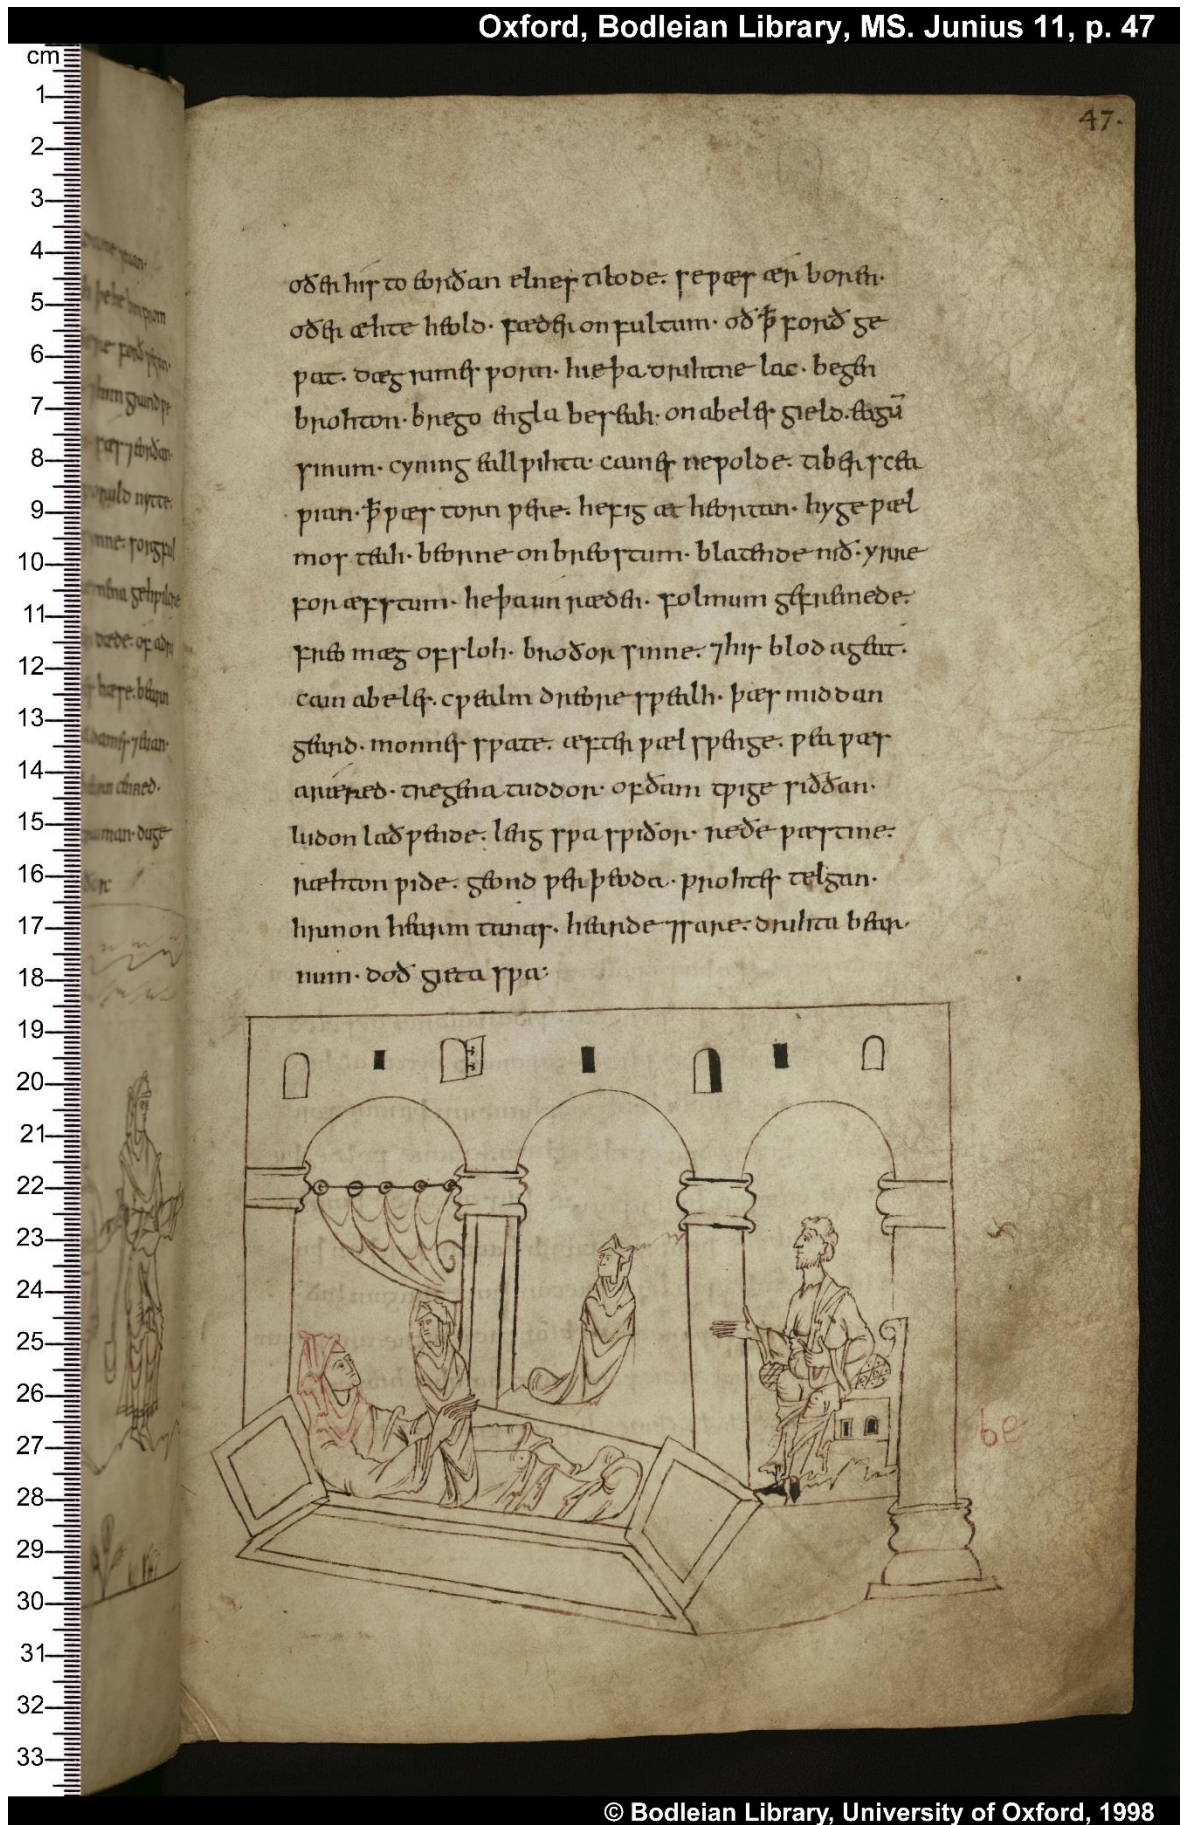 Oxford, Bodleian Library, MS. Junius 11, p. 47
cm
1
2
3
4
5
6
7
8
9
10
11
12
13
14
15
16
17
18
19
20
21
22
23
24
25
26
27
28
29
30
31
32
33
47.
oðer his to eorðan elnes tilode. se ƿæs ær boren·
oðer æhte heold· fæder on fultum· oð ꝥ forð ge
ƿat· dæg rimes ƿorn· hie þa drihtne lac· begen
brohton· brego engla beseah· on abeles gield· eagū
sinum· cyning eall ƿihta· caines ne ƿolde· tiber scea
ƿian· ꝥ ƿæs torn ƿere· hefig æt heortan· hyge ƿæl
mos teah· beorne on breostum· blatende nið· yrre
for æfstum· he þa unræden· folmum gefremede·
freo mæg ofsloh· broðor sinne· ⁊ his blod ageat·
cain abeles· cƿealm dreore sƿealh· þæs middan
geard· monnes sƿate· æfter ƿæl sƿenge· ƿea ƿæs
aræred· tregena tuddor· of ðam tƿige siððan·
ludon lað ƿende· leng sƿa sƿiðor· reðe ƿæstme·
ræhton ƿide· geond ƿer þeoda· ƿrohtes telgan·
hrinon hearm tanas· hearde ⁊ sare· drihta bear·
num· doð gieta sƿa:
be
© Bodleian Library, University of Oxford, 1998